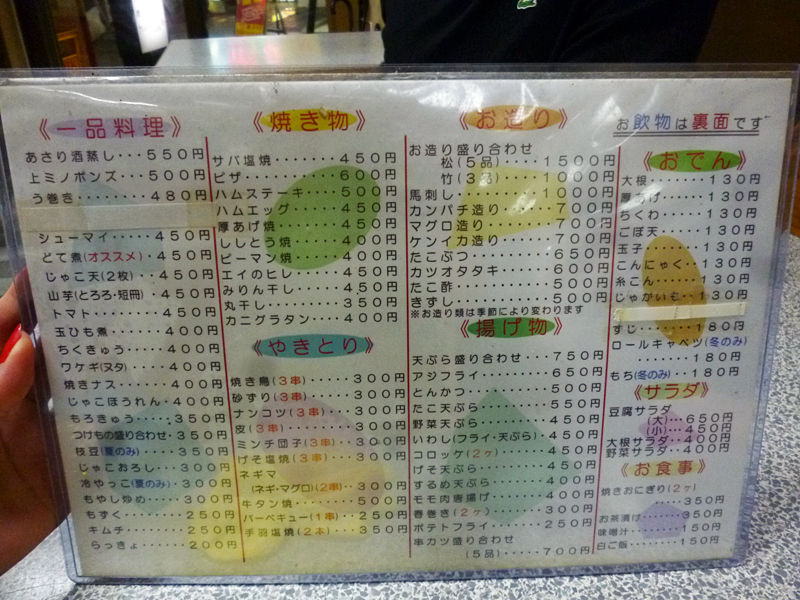 《一品料理》
あさり酒蒸し・・・550円
上ミノポンズ・・・500円
う巻き・・・・・・480円
シューマイ・・・・・450円
とて煮(オススメ)・・450円
じゃこ天(2枚)・・・450円
山芋(とろろ・短冊)・450円
トマト・・・・・・・450円
玉ひも煮・・・・・・400円
ちくきゅう・・・・・400円
ワケギ(ヌタ)・・・・400円
焼きナス・・・・・・400円
じゃこほうれん・・・400円
もろきゅう・・・・・350円
つけもの盛り合わせ・350円
枝豆(夏のみ)・・・・350円
じゃこおろし・・・・300円
冷やっこ(夏のみ)・・300円
もやし炒め・・・・・300円
もずく・・・・・・・250円
キムチ・・・・・・・250円
らっきょ・・・・・・200円
《焼き物》
サバ塩焼・・・・・・・450円
ピザ・・・・・・・・・600円
ハムステーキ・・・・・500円
ハムエッグ・・・・・・450円
厚あげ焼・・・・・・・450円
ししとう焼・・・・・・400円
ピーマン焼・・・・・・400円
エイのヒレ・・・・・・450円
みりん干し・・・・・・450円
丸干し・・・・・・・・350円
カニグラタン・・・・・400円
《やきとり》
焼き鳥(3串)・・・・300円
砂ずり(3串)・・・・300円
ナンコツ(3串)・・・300円
皮(3串)・・・・・・300円
ミンチ団子(3串)・・300円
げそ塩焼(3串)・・・300円
ネギマ
(ネギ・マグロ)(2串)・300円
牛タン焼・・・・・・500円
バーベキュー(1串)・250円
手羽塩焼(2本)・・・350円
《お造り》
お造り盛り合わせ
松(5品)・・・・1500円
竹(3品)・・・・1000円
馬刺し・・・・・・1000円
カンパチ造り・・・・700円
マグロ造り・・・・・700円
ケンイカ造り・・・・700円
たこぶつ・・・・・・650円
カツオタタキ・・・・600円
たこ酢・・・・・・・500円
きずし・・・・・・・500円
※お造り類は季節により変わります
《揚げ物》
天ぷら盛り合わせ・・・750円
アジフライ・・・・・・650円
とんかつ・・・・・・・500円
たこ天ぷら・・・・・・550円
野菜天ぷら・・・・・・450円
いわし(フライ・天ぷら)・450円
コロッケ(2ヶ)・・・・400円
げそ天ぷら・・・・・・450円
するめ天ぷら・・・・・400円
モモ肉唐揚げ・・・・・400円
春巻き(2ヶ)・・・・・300円
ポテトフライ・・・・・250円
串カツ盛り合わせ
(5品)・・・・700円
お飲物は裏面です
《おでん》
大根・・・・・・・130円
厚あげ・・・・・・130円
ちくわ・・・・・・130円
ごぼ天・・・・・・130円
玉子・・・・・・・130円
こんにゃく・・・・130円
糸こん・・・・・・130円
じゃがいも・・・・130円
すじ・・・・・・・180円
ロールキャベツ(冬のみ)
・・・・・・・180円
もち(冬のみ)・・・180円
《サラダ》
豆腐サラダ
(大)・・・650円
(小)・・・450円
大根サラダ・・400円
野菜サラダ・・400円
《お食事》
焼きおにぎり(2ヶ)
・・・・・350円
お茶漬け・・・・350円
味噌汁・・・・・150円
白ご飯・・・・・150円